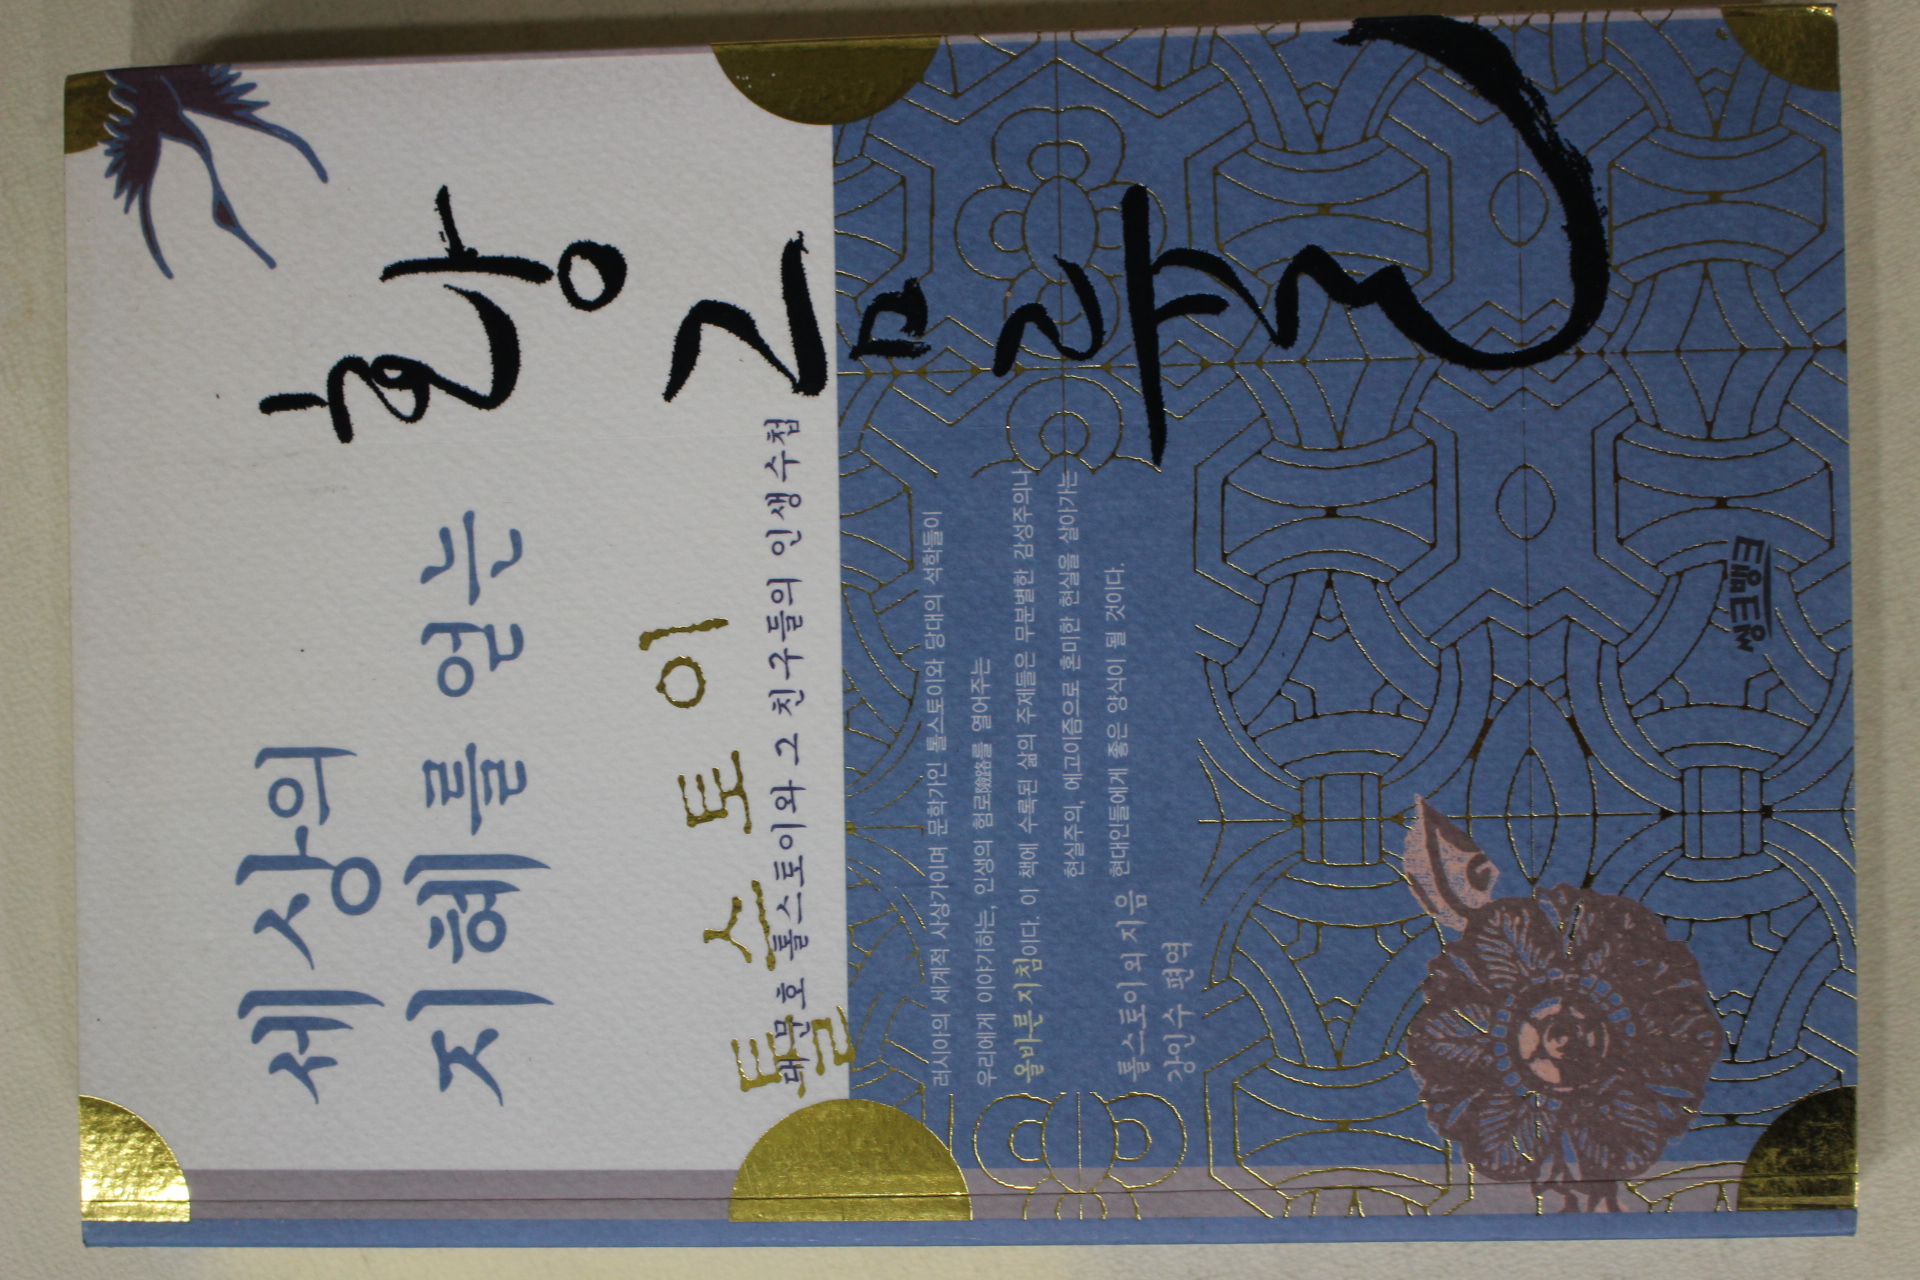 세상의
지혜를 얻는
황금
열쇠
톨스토이
대문호 톨스토이와 그 친구들의 인생수첩
러시아의 세계적 사상가이며 문학가인 톨스토이와 당대의 석학들이
우리에게 이야기하는, 인생의 험로險路를 열어주는
올바른 지침이다. 이 책에 수록된 삶의 주제들은 무분별한 감성주의나
현실주의, 에고이즘으로 혼미한 현실을 살아가는
현대인들에게 좋은 양식이 될 것이다.
톨스토이 외 지음
강인수 편역
씽크뱅크